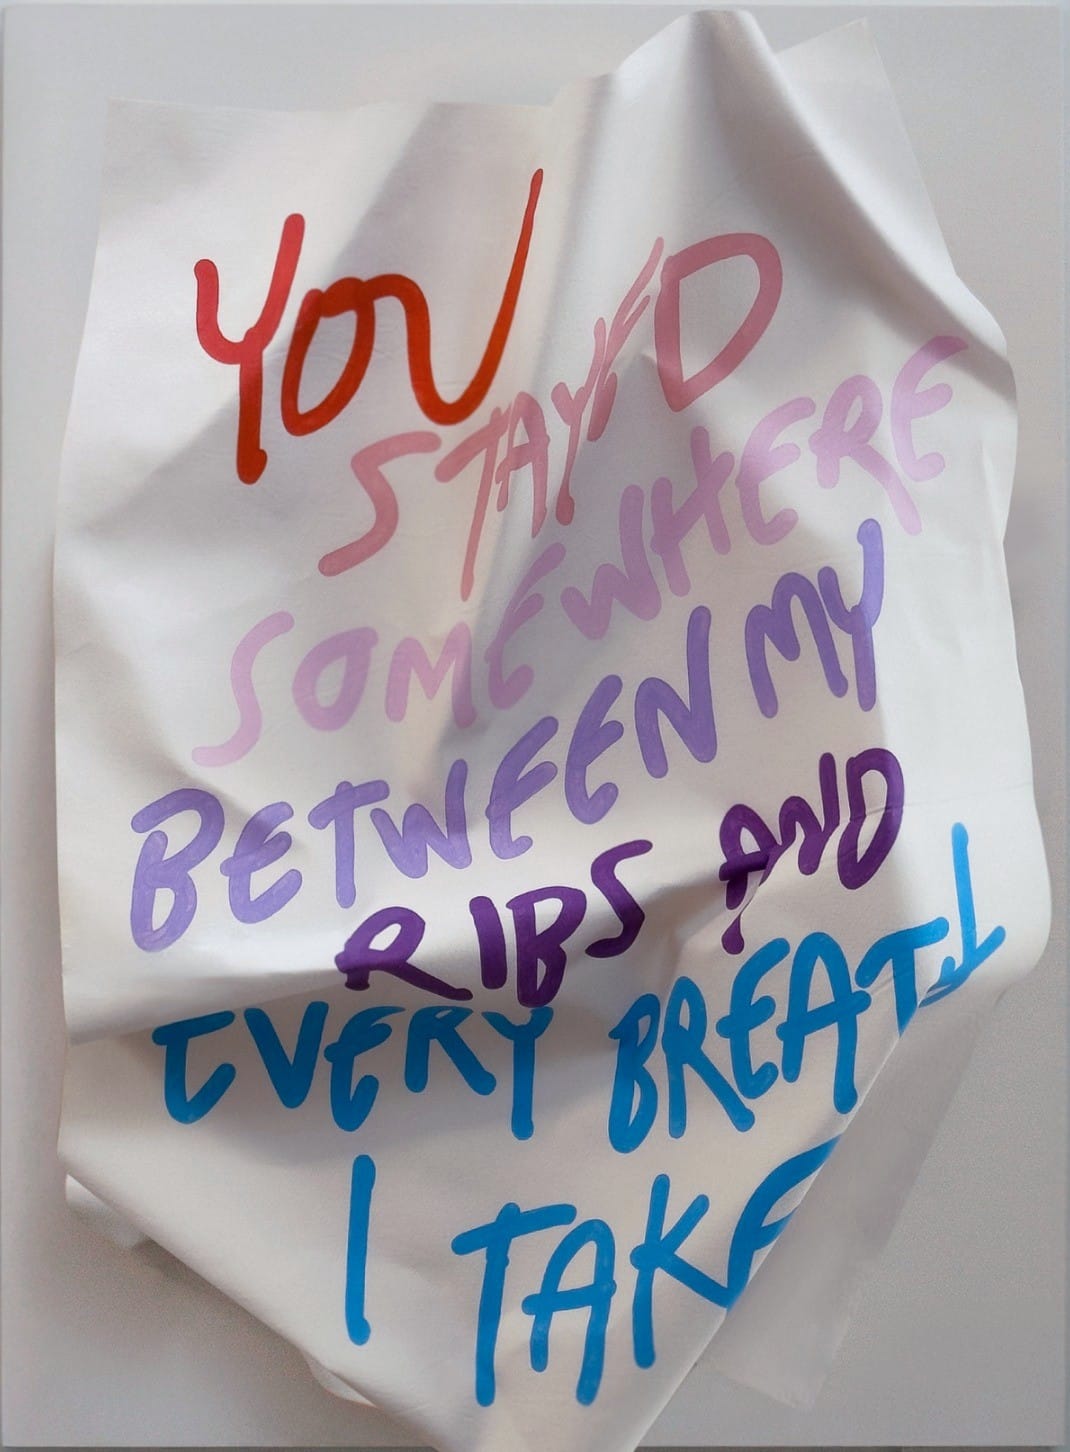 YOU
STAYED
SOMEWHERE
BETWEEN MY
RIBS AND
EVERY BREATH
I TAKE